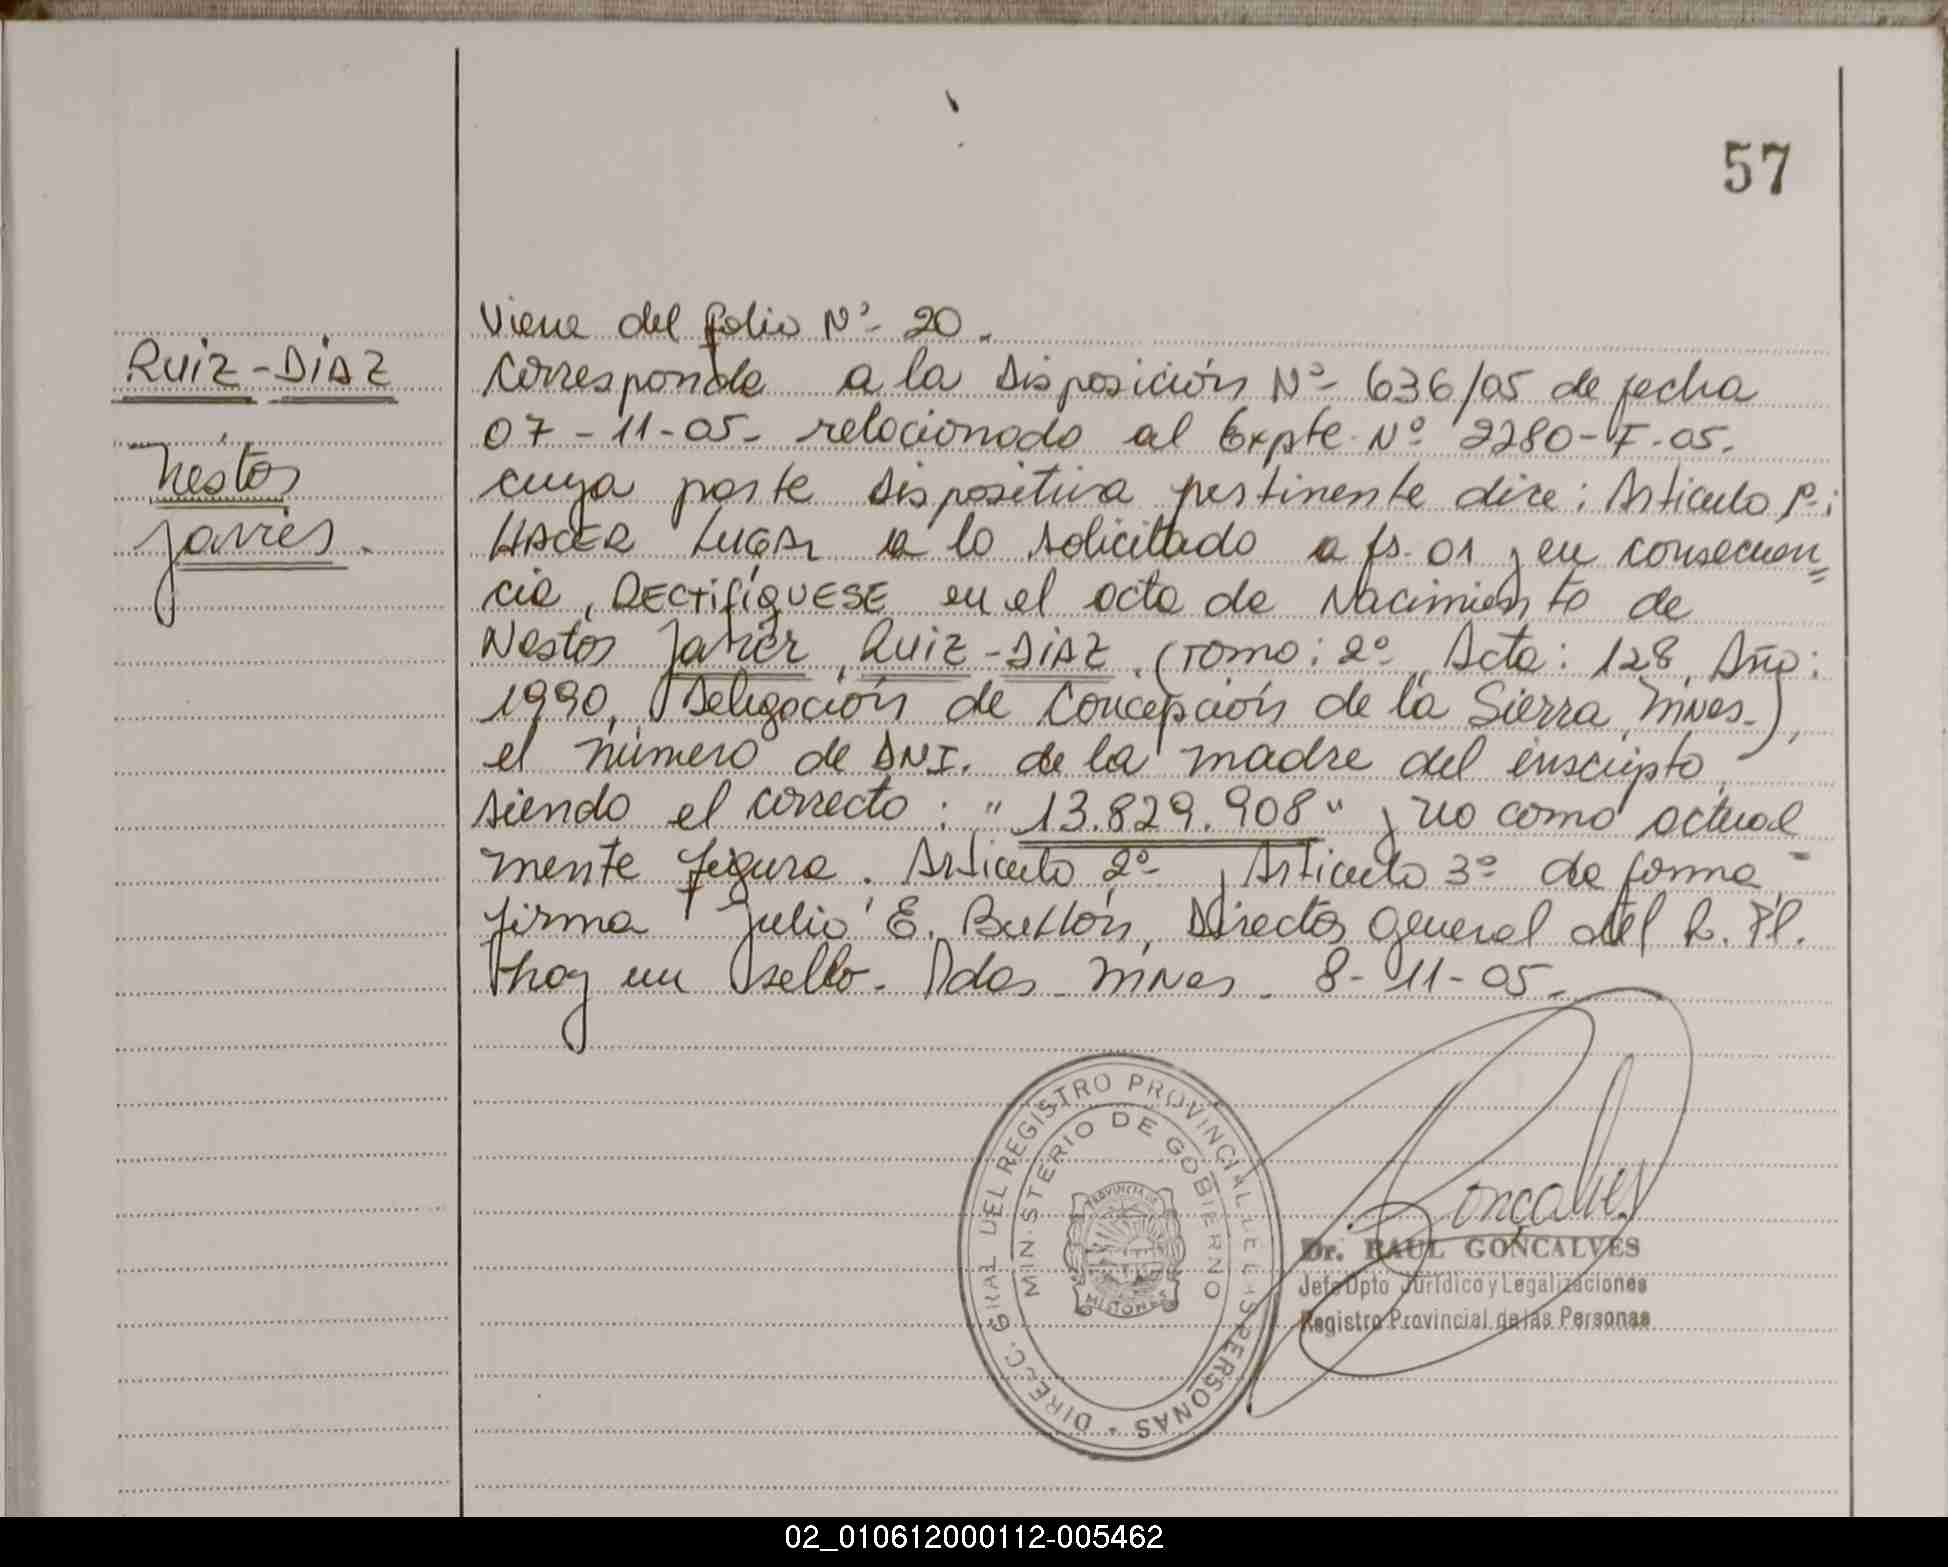 57
Viene del folio Nº 20.
RUIZ-DIAZ
Corresponde a la Disposición Nº 636/05 de fecha
07-11-05- relacionado al Expte. Nº 2280-F-05.
Nestor
cuya parte dispositiva pertinente dice: Articulo 1º:
Javier.
HACER LUGAR a lo solicitado a fs. 01 y en consecuen=
cia, RECTIFÍQUESE en el acta de Nacimiento de
Nestor Javier RUIZ-DIAZ (Tomo: 2º Acta: 128, Año:
1990, Delegación de Concepción de la Sierra, Mnes.),
el número de DNI. de la madre del inscripto,
siendo el correcto: "13.829.908" y no como actual-
mente figura. Articulo 2º y Articulo 3º de forma,
firma Julio E. Director General del R. P.
hay un sello. Pdas. Mnes. 8-11-05.
DIRECC. GRAL DEL REGISTRO PROVINCIAL DE LAS PERSONAS
MINISTERIO DE GOBIERNO
PROVINCIA DE
MISIONES
Gonçalves
Dr. RAUL GONÇALVES
Jefe Dpto Jurídico y Legalizaciones
Registro Provincial de las Personas
02_010612000112-005462